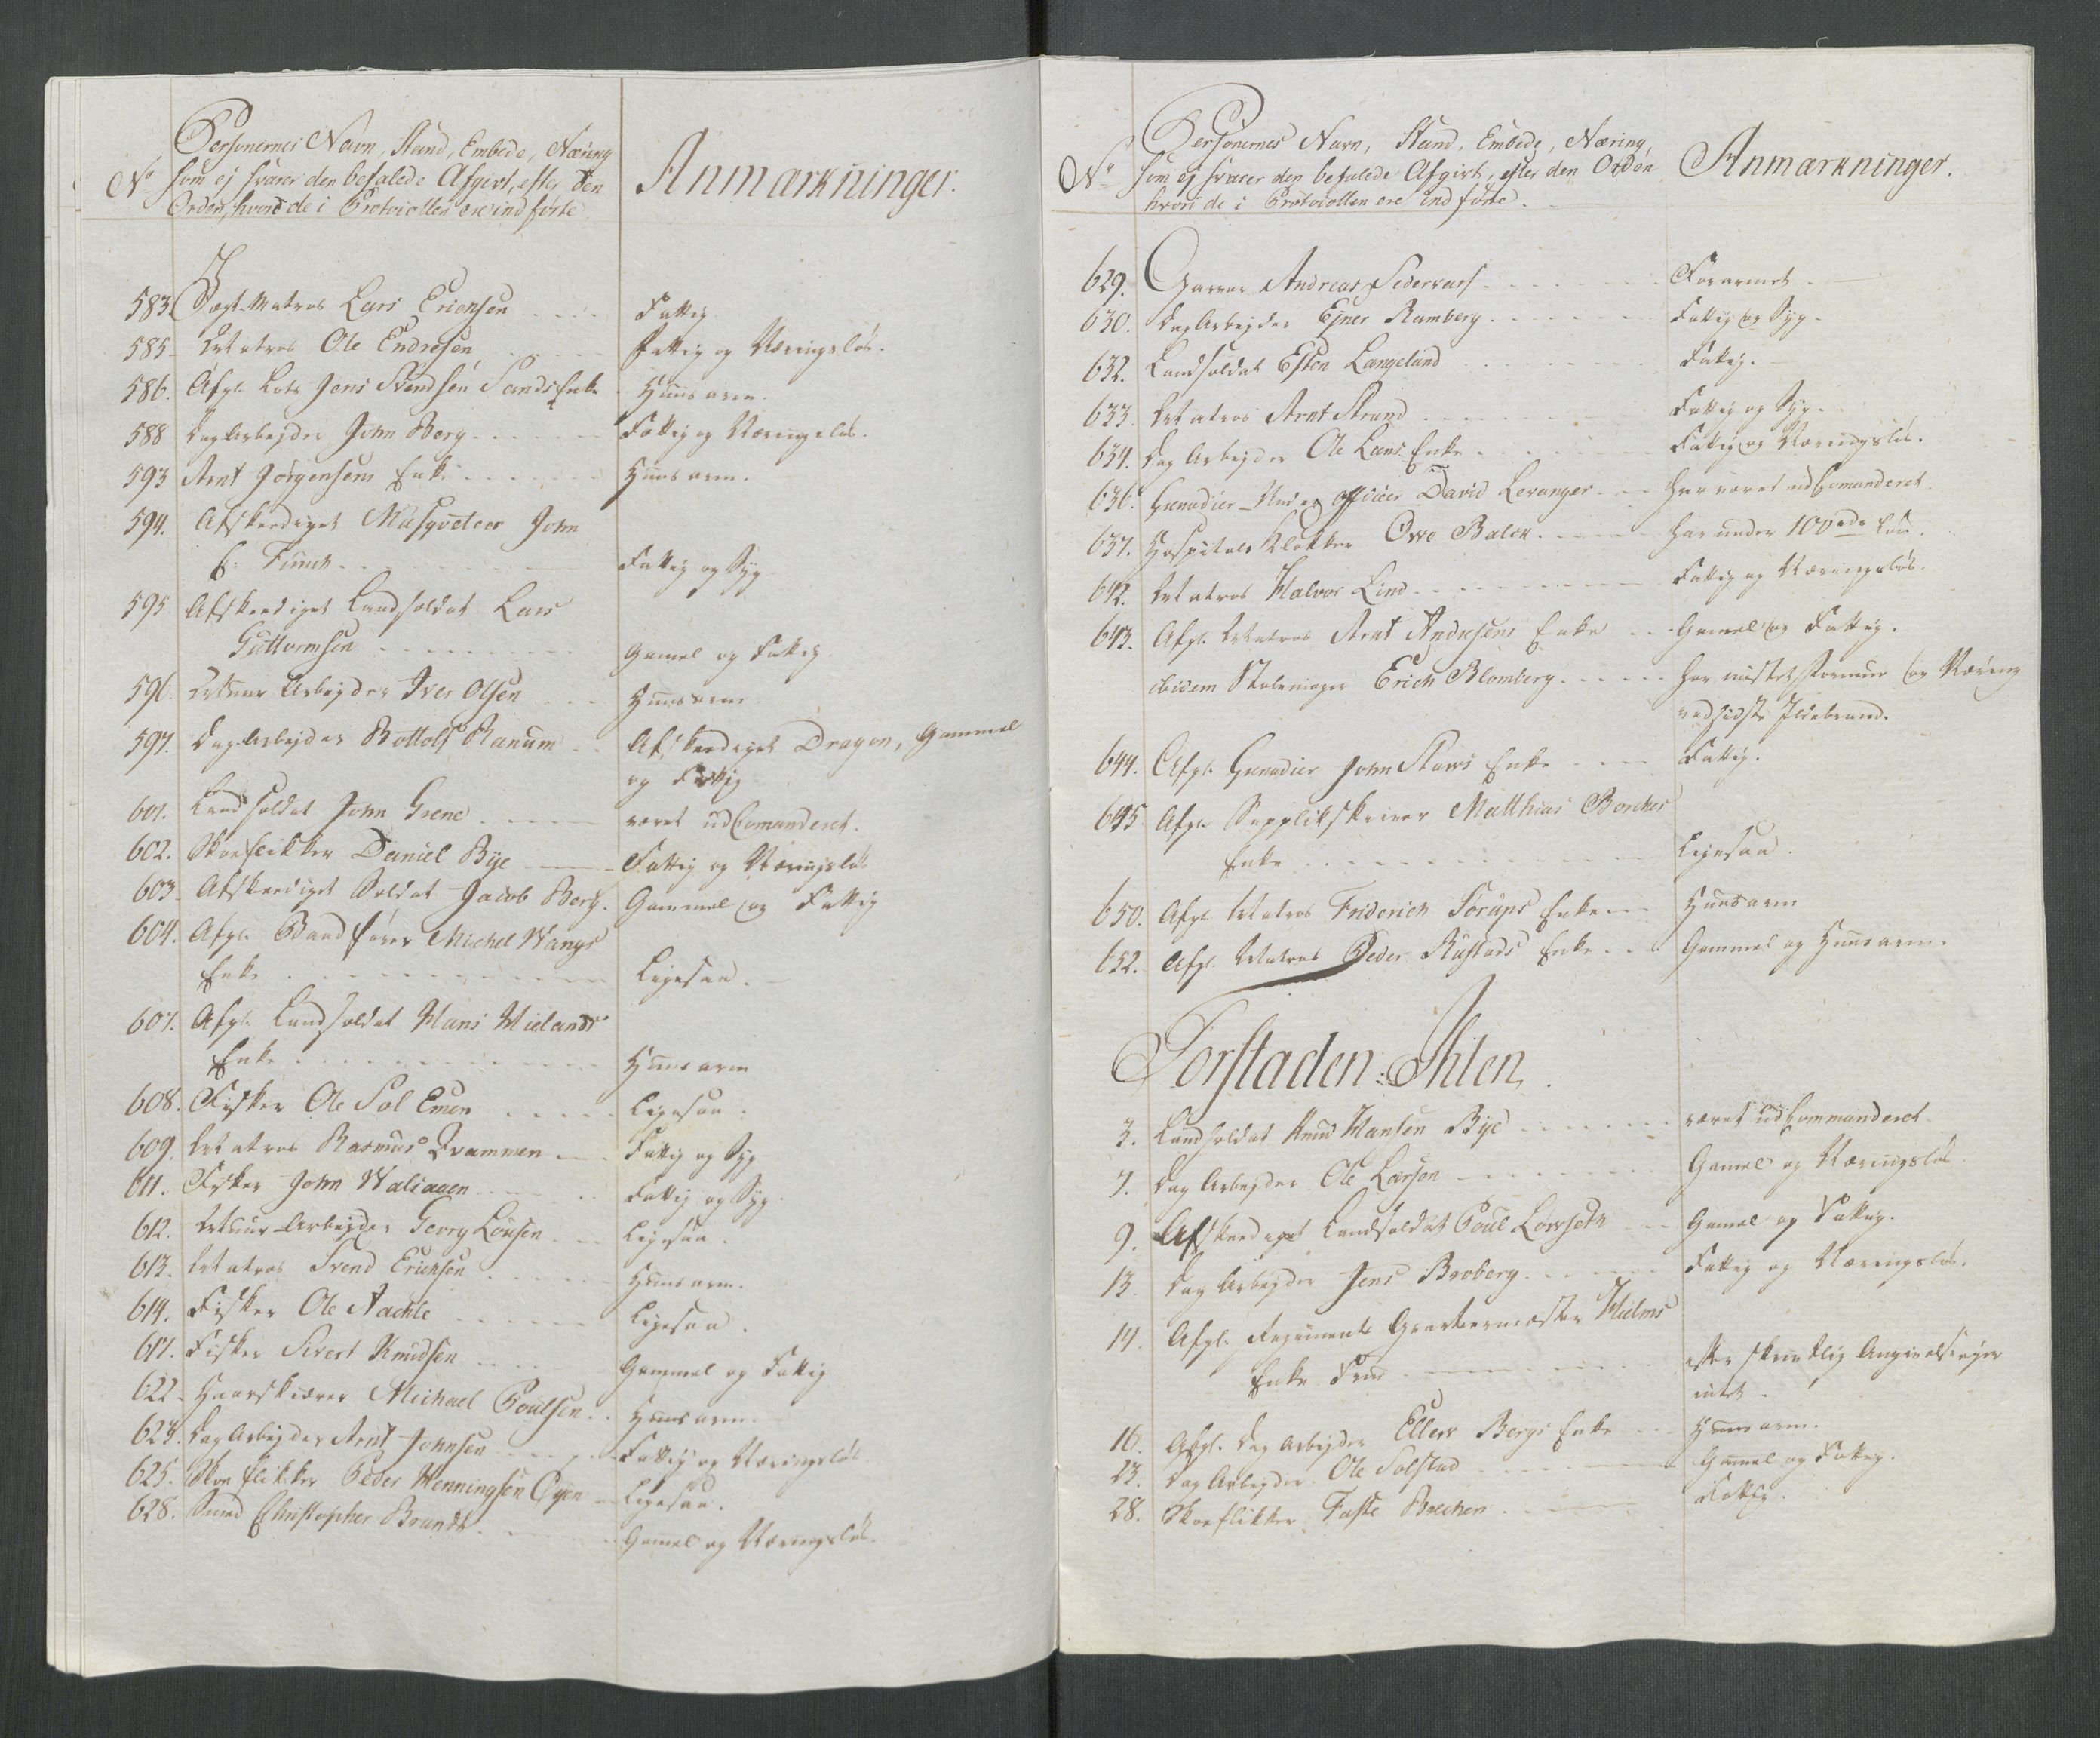 No
Personernes Navn, Stand, Embede, Næring
som ej svarer den befalede Afgivt, efter den
Orden, hvori de i Protocollen ere indførte
Anmærkninger.
583. Jægt-Matros Lars Erichsen .... Fattig
585. Matros Ole Endresen ..... Fattig og Næringsløs.
586. Afgl. Lods Jens Svendsen Sands Enke - Huusarm.
588 Dag Arbejder John Berg ...... Fattig og Næringsløs.
593 Arnt Jørgensens Enke ...... Huusarm.
594. Afskeediget Musqveteer John
C: Funch ..... Fattig og Syg
595 Afskeediget Landsoldat Lars
Guttormsen ......... Gamel og Fattig
596. Muur Arbejder Iver Olsen ... Huusarm
597. Dag Arbejder Bottolf Ranum .. Afskeediget Dragon, Gammel
og Fattig
601. Landsoldat John Grene ..... været udComanderet.
602. Skoeflikker Daniel Bye ---- Fattig og Næringsløs
603. Afskeediget Soldat Jacob Berg. Gammel og Fattig
604. Afgl. Vandfører Michel Wangs
Enke ............ Ligesaa.
607. Afgl. Landsoldat Hans Mielands
Enke ............ Huusarm
608. Fisker Ole Sol Emen ..... Ligesaa.
609. Matros Rasmus Qvammen ... Fattig og Syg
611. Fisker John Waliaaen .... Fattig og Syg.
612. Muur-Arbejder Georg Lousen ... Ligesaa.
613. Matros Svend Erichsen ..... Huusarm.
614. Fisker Ole Aachle ...... Ligesaa.
617. Fisker Sivert Knudsen .... Gammel og Fattig
622. Haarskiærer Michael Poulsen .. Huusarm.
623. Dag Arbejder Arnt Johnsen ..... Fattig og Næringsløs
625. Skoeflikker Peder Henningsen Øyen - Ligesaa.
628. Smed Christopher Brandt ..... Gamel og Næringsløs.
No
Personernes Navn, Stand, Embede, Næring,
som ej svarer den befalede Afgivt, efter den Orden
hvori de i Protocollen ere indførte.
Anmærkninger.
629. Garver Andreas Sedervarf ...... Forarmet.
630. Dag Arbejder Ejner Ramberg ..... Fattig og Syg.
632. Landsoldat Esten Langeland ..... Fattig.
633. Matros Arnt Strand ..... Fattig og Syg.
634. Dag Arbejder Ole Lans Enke ..... Fattig og Næringsløs.
636. Grenadier-Under Officier David Levanger ... har været udComanderet.
637. Hospitals Klokker Owe Balck ..... har under 100 rdr Løn.
642. Matros Halvor Lind ....... Fattig og Næringsløs.
643. Afgl. Matros Arnt Andresens Enke ... Gamel og Fattig.
ibidem Stolemager Erich Blomberg ..... har mistet Formue og Næring
ved sidste Ildebrand.
644. Afgl. Grenadier John Staws Enke .... Fattig.
645 Afgl. Supplikskriver Matthias Borchs
Enke ............ Ligesaa.
650. Afgl. Matros Friderich Sørups Enke ... Huusarm
652. Afgl. Matros Peder Rustads Enke .. Gammel og Huusarm.
Forstaden: Ihlen.
3. Landsoldat Knud Hansen Bye ...... været udCommanderet.
7. Dag Arbejder Ole Larsen ....... Gamel og Næringsløs.
9. Afskeediget Landsoldat Poul Lowseth ... Gamel og Fattig.
13. Dag Arbejder Jens Broberg ...... Fattig og Næringsløs.
14. Afgl. Regiments Qvarteermester Hielms
Enke Frue ......... efter skrivtlig Angivelse ejer
intet.
16. Afgl. Dag Arbejder Ellew Bergs Enke ... Huusarm.
23. Dag Arbejder Ole Solstad ....... Gamel og Fattig.
28. Skoeflikker Faste Brechen ...... Fattig.